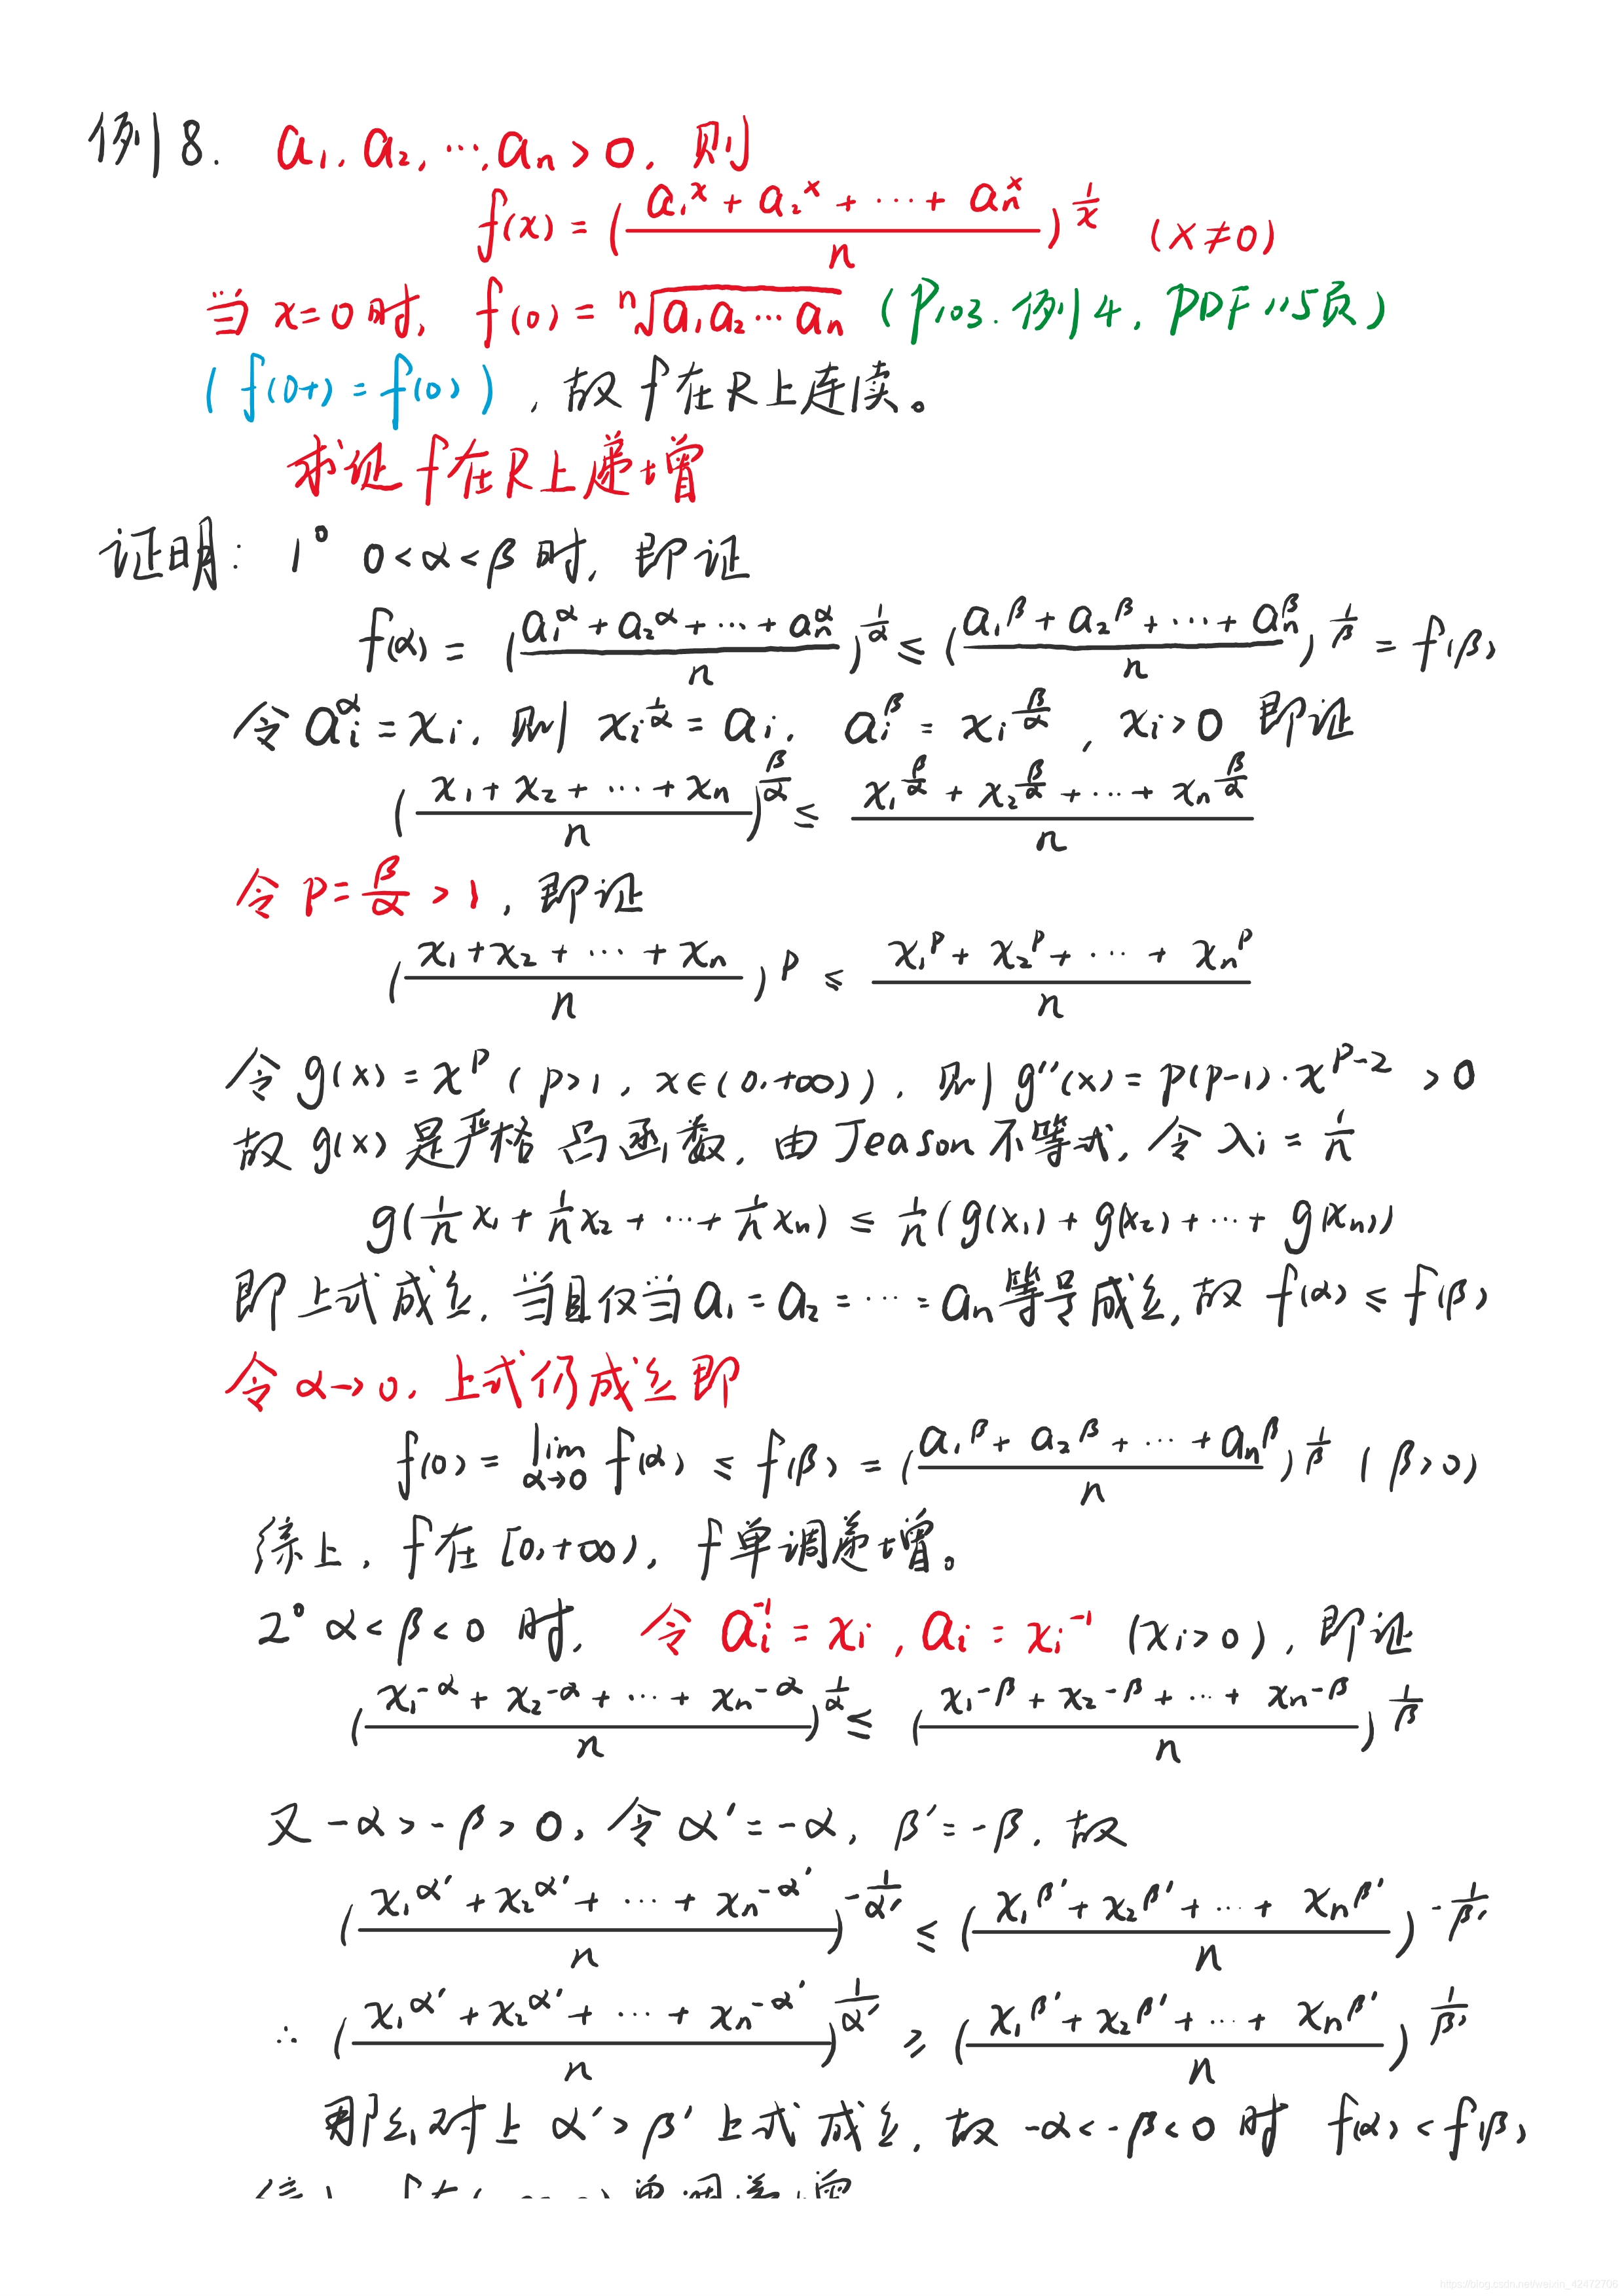 例8. a₁, a₂, ⋯, aₙ > 0, 则
f(x) = ((a₁ˣ + a₂ˣ + ⋯ + aₙˣ)/n)^(1/x) (x≠0)
当 x=0 时, f(0) = ⁿ√(a₁a₂⋯aₙ) (P103. 例4, PDF 115页)
(f(0+) = f(0)), 故 f在R上连续。
求证 f在R上递增
证明: 1° 0<α<β 时, 即证
f(α) = ((a₁^α + a₂^α + ⋯ + aₙ^α)/n)^(1/α) ≤ ((a₁^β + a₂^β + ⋯ + aₙ^β)/n)^(1/β) = f(β)
令 aᵢ^α = xᵢ, 则 xᵢ^(1/α) = aᵢ, aᵢ^β = xᵢ^(β/α), xᵢ>0 即证
((x₁ + x₂ + ⋯ + xₙ)/n)^(β/α) ≤ (x₁^(β/α) + x₂^(β/α) + ⋯ + xₙ^(β/α))/n
令 p = β/α > 1, 即证
((x₁ + x₂ + ⋯ + xₙ)/n)^p ≤ (x₁^p + x₂^p + ⋯ + xₙ^p)/n
令 g(x) = x^p (p>1, x∈(0,+∞)), 则 g''(x) = p(p-1)·x^(p-2) > 0
故 g(x) 是严格凸函数, 由Jeason不等式, 令 λᵢ = 1/n
g(1/n x₁ + 1/n x₂ + ⋯ + 1/n xₙ) ≤ 1/n (g(x₁) + g(x₂) + ⋯ + g(xₙ))
即上式成立, 当且仅当 a₁ = a₂ = ⋯ = aₙ 等号成立, 故 f(α) ≤ f(β)
令 α→0, 上式仍成立即
f(0) = lim_(α→0) f(α) ≤ f(β) = ((a₁^β + a₂^β + ⋯ + aₙ^β)/n)^(1/β) (β>0)
综上, f在 [0,+∞), f单调递增。
2° α<β<0 时, 令 aᵢ^(-1) = xᵢ, aᵢ = xᵢ^(-1) (xᵢ>0), 即证
((x₁^(-α) + x₂^(-α) + ⋯ + xₙ^(-α))/n)^(1/α) ≤ ((x₁^(-β) + x₂^(-β) + ⋯ + xₙ^(-β))/n)^(1/β)
又 -α > -β > 0, 令 α' = -α, β' = -β, 故
((x₁^α' + x₂^α' + ⋯ + xₙ^(-α'))/n)^(-1/α') ≤ ((x₁^β' + x₂^β' + ⋯ + xₙ^β')/n)^(-1/β')
∴ ((x₁^α' + x₂^α' + ⋯ + xₙ^(-α'))/n)^(1/α') ≥ ((x₁^β' + x₂^β' + ⋯ + xₙ^β')/n)^(1/β')
那么对上 α'>β' 上式成立, 故 -α<-β<0 时 f(α) < f(β)
https://blog.csdn.net/weixin_42472706